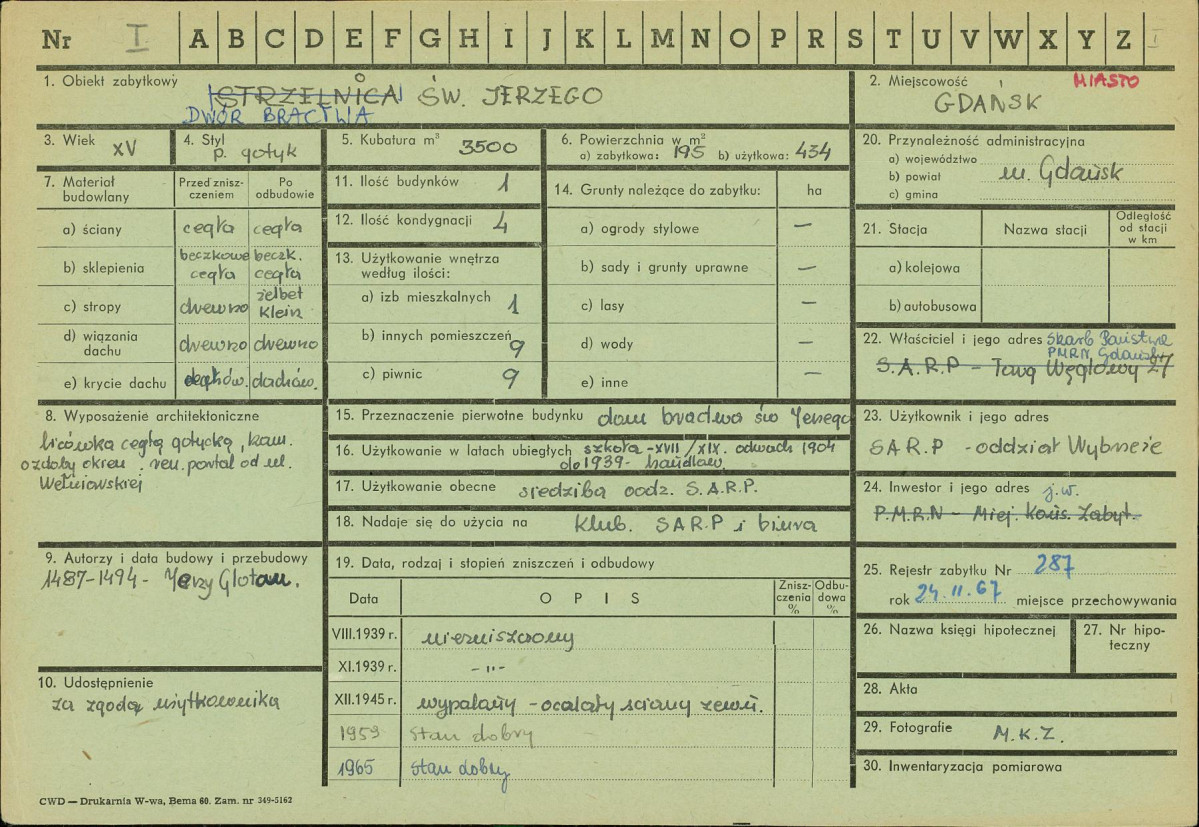 Nr I A B C D E F G H I J K L M N O P R S T U V W X Y Z I
1. Obiekt zabytkowy
STRZELNICA ŚW. JERZEGO
DWÓR BRACTWA
2. Miejscowość MIASTO
GDAŃSK
3. Wiek XV
4. Styl
p. gotyk
5. Kubatura m³ 3500
6. Powierzchnia w m²
a) zabytkowa: 195 b) użytkowa: 434
20. Przynależność administracyjna
a) województwo
b) powiat m. Gdańsk
c) gmina
7. Materiał budowlany
Przed znisz-
czeniem
Po
odbudowie
a) ściany cegła cegła
b) sklepienia beczkowe cegła beczk. cegła
c) stropy drewno żelbet Klein
d) wiązania dachu drewno drewno
e) krycie dachu dachów.
11. Ilość budynków 1
12. Ilość kondygnacji 4
13. Użytkowanie wnętrza
według ilości:
a) izb mieszkalnych 1
b) innych pomieszczeń 9
c) piwnic 9
14. Grunty należące do zabytku: ha
a) ogrody stylowe —
b) sady i grunty uprawne —
c) lasy —
d) wody —
e) inne —
21. Stacja Nazwa stacji Odległość
od stacji
w km
a) kolejowa
b) autobusowa
22. Właściciel i jego adres Skarb Państwa
PMRN Gdańsk
S.A.R.P – Targ Węglowy 27
8. Wyposażenie architektoniczne
licówka cegłą gotycką, kam.
ozdoby okien, ren. portal od ul.
15. Przeznaczenie pierwotne budynku dom bractwa św Jerzego
16. Użytkowanie w latach ubiegłych szkoła - XVII/XIX. odwach 1904
do 1939 - handlow.
17. Użytkowanie obecne siedziba oddz. S.A.R.P.
18. Nadaje się do użycia na Klub. SARP i biura
23. Użytkownik i jego adres
SAR.P - oddział Wybrzeże
24. Inwestor i jego adres j.w.
P.M.R.N – Miej. Kons. Zabyt.
9. Autorzy i data budowy i przebudowy
1487-1494 - Jerzy Glotau.
19. Data, rodzaj i stopień zniszczeń i odbudowy
Data O P I S Znisz-
czenia
% Odbu-
dowa
%
VIII.1939 r. niezniszczony
XI.1939 r. -"-
XII.1945 r. wypalony - ocalały ściany zewn.
1959 Stan dobry
1965 Stan dobry
25. Rejestr zabytku Nr 287
rok 24.II.67 miejsce przechowywania
26. Nazwa księgi hipotecznej
27. Nr hipo-
teczny
10. Udostępnienie
za zgodą użytkownika
28. Akta
29. Fotografie M.K.Z.
30. Inwentaryzacja pomiarowa
CWD — Drukarnia W-wa, Bema 60. Zam. nr 349-5162